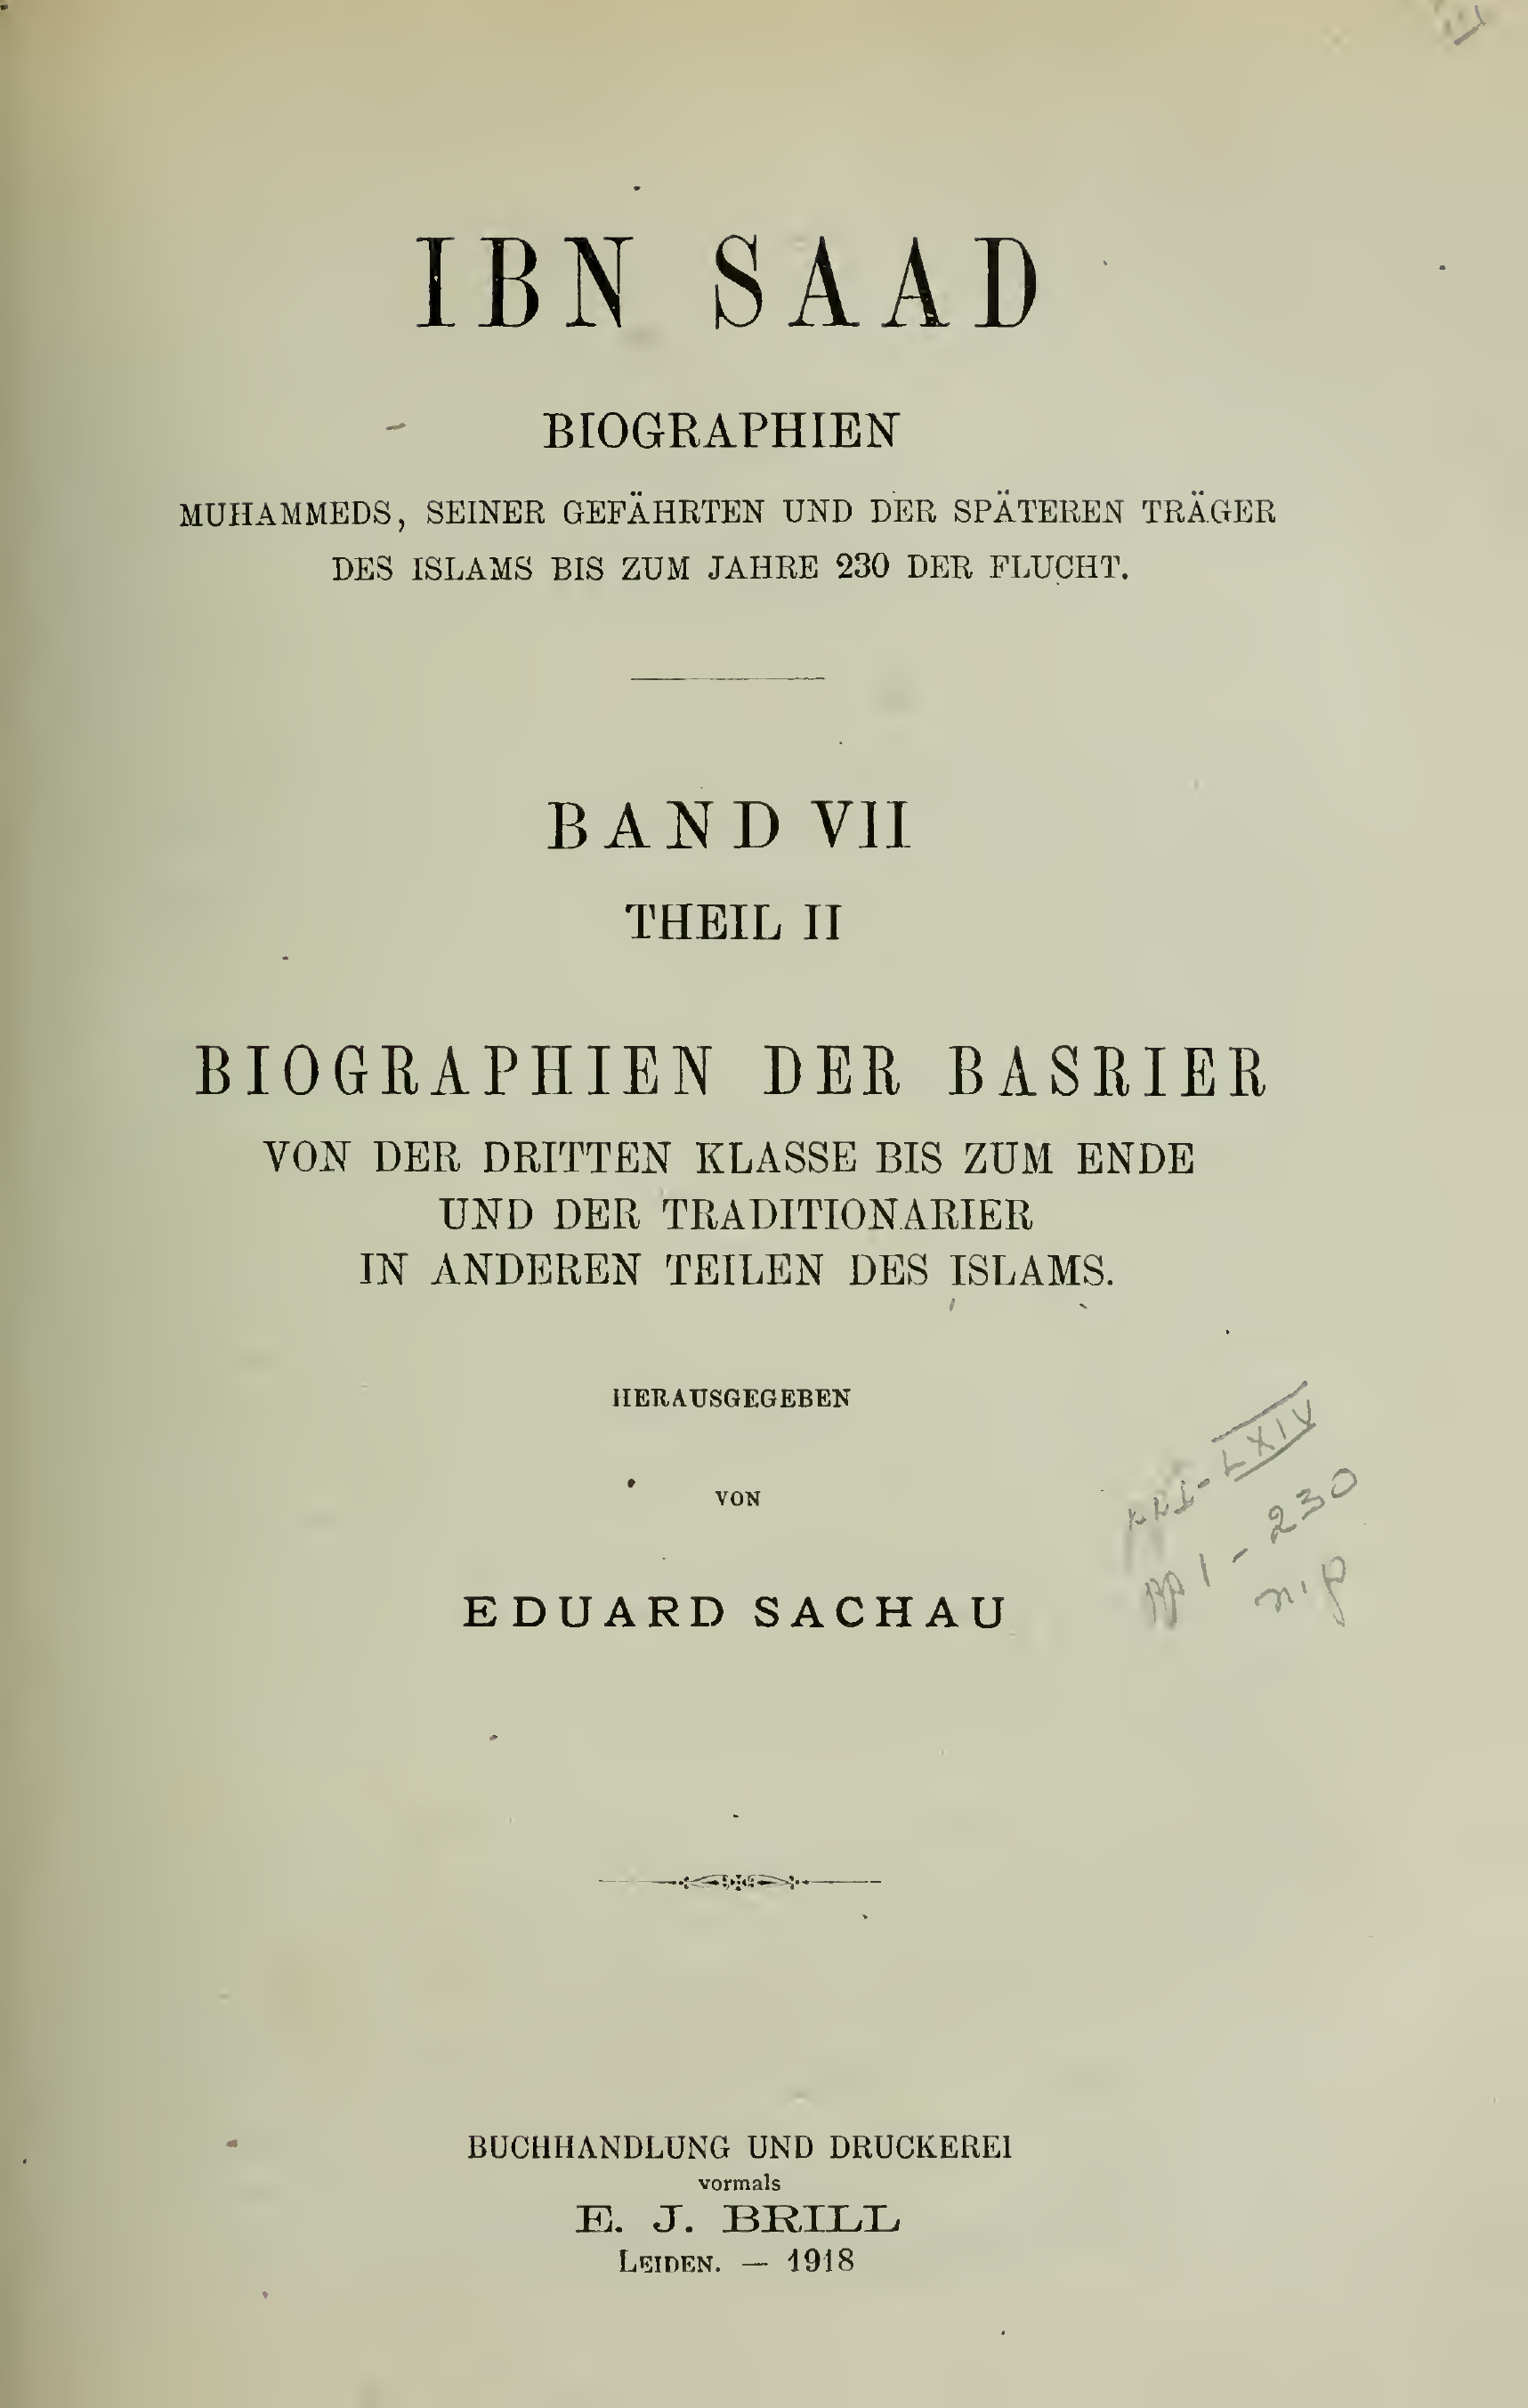 IBN SAAD
BIOGRAPHIEN
MUHAMMEDS, SEINER GEFÄHRTEN UND DER SPÄTEREN TRÄGER
DES ISLAMS BIS ZUM JAHRE 230 DER FLUCHT.
BAND VII
THEIL II
BIOGRAPHIEN DER BASRIER
VON DER DRITTEN KLASSE BIS ZUM ENDE
UND DER TRADITIONARIER
IN ANDEREN TEILEN DES ISLAMS.
HERAUSGEGEBEN
LXIV
VON
pp 1 - 230
n.p
EDUARD SACHAU
BUCHHANDLUNG UND DRUCKEREI
vormals
E. J. BRILL
LEIDEN. — 1918